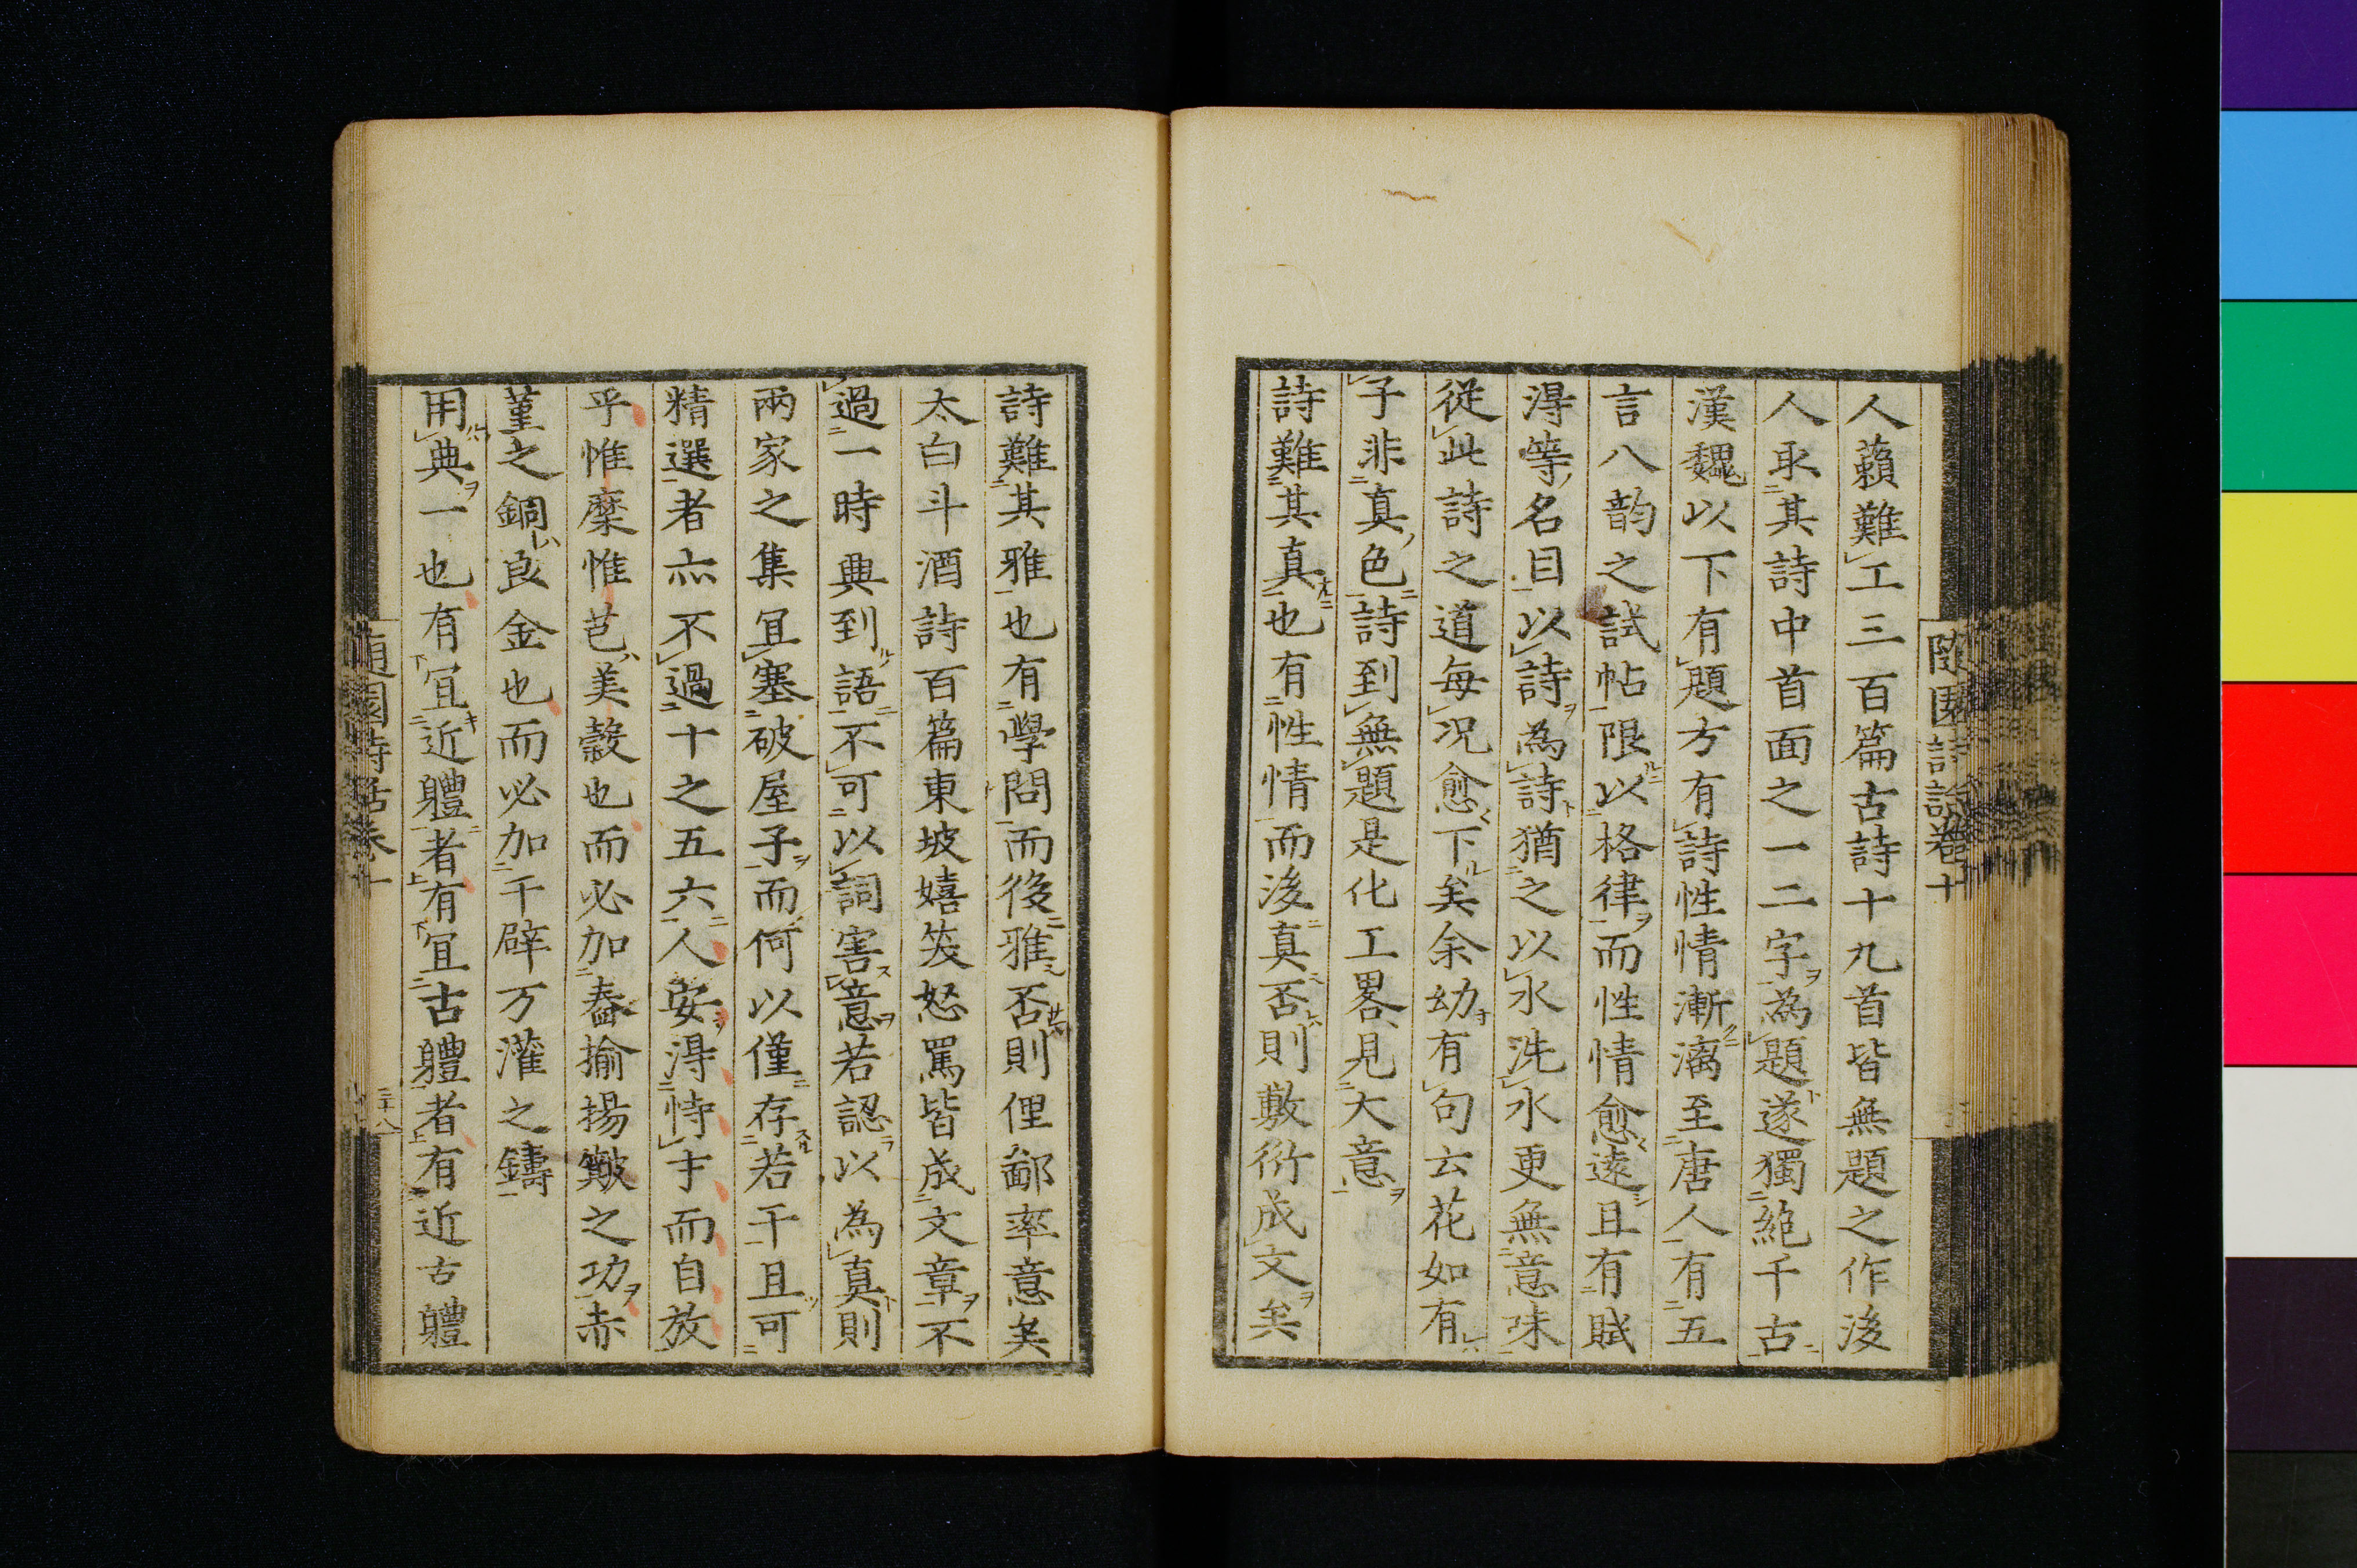 人籟難工三百篇古詩十九首皆無題之作後
人取其詩中首面之一二字為題遂獨絶千古
漢魏以下有題方有詩性情漸漓至唐人有五
言八韵之試帖限以格律而性情愈遠且有賦
淂等名目以詩為詩猶之以水洗水更無意味
従此詩之道每况愈下矣余幼有句云花如有
子非真色詩到無題是化工畧見大意
詩難其真也有性情而後真否則敷衍成文矣
詩難其雅也有學問而後雅否則俚鄙率意矣
太白斗酒詩百篇東坡嬉笑怒罵皆成文章不
過一時興到語不可以詞害意若認以為真則
兩家之集冝塞破屋子而何以僅存若干且可
精選者亦不過十之五六人安淂恃才而自放
乎惟糜惟芑美穀也而必加舂揄揚簸之功赤
堇之銅良金也而必加千辟万灌之鑄
用典一也有冝近體者有冝古體者有近古體
隨園詩話卷十
隨園詩話卷十
三十八